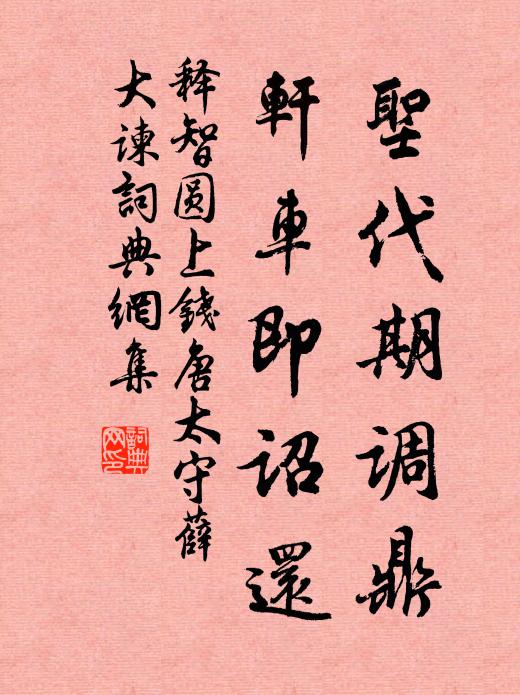 聖代期调鼎
軒車即詔還
释智圆上錢唐太守薛
大諫詞典網集
詞典網印